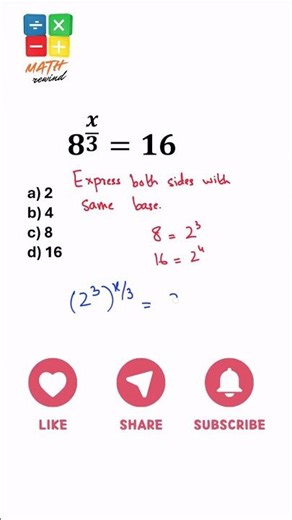 MATH
rewind
8^(x/3) = 16
Express both sides with
same base.
a) 2
b) 4
c) 8
d) 16
8 = 2^3
16 = 2^4
(2^3)^(x/3) =
LIKE
SHARE
SUBSCRIBE